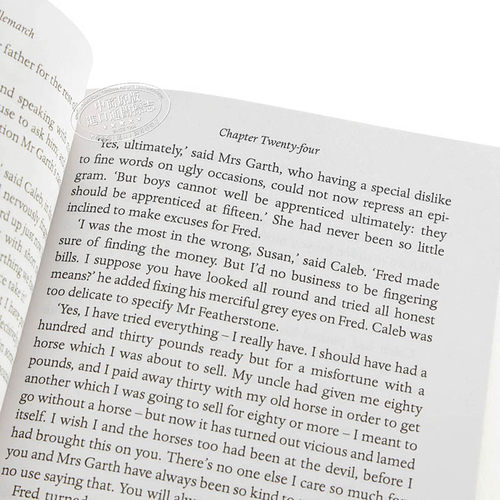 llemarch
father for the rese
nd speaking with
use to ask him
tion Mr Garth
said Caleb
nervously
rd up just now
with those
erything was
take it
Chapter Twenty-four
'Yes, ultimately,' said Mrs Garth, who having a special dislike
to fine words on ugly occasions, could not now repress an epi-
gram. 'But boys cannot well be apprenticed ultimately: they
should be apprenticed at fifteen.' She had never been so little
inclined to make excuses for Fred.
'I was the most in the wrong, Susan,' said Caleb. 'Fred made
sure of finding the money. But I'd no business to be fingering
bills. I suppose you have looked all round and tried all honest
means?' he added fixing his merciful grey eyes on Fred. Caleb was
too delicate to specify Mr Featherstone.
'Yes, I have tried everything – I really have. I should have had a
hundred and thirty pounds ready but for a misfortune with a
horse which I was about to sell. My uncle had given me eighty
pounds, and I paid away thirty with my old horse in order to get
another which I was going to sell for eighty or more – I meant to
go without a horse – but now it has turned out vicious and lamed
itself. I wish I and the horses too had been at the devil, before I
had brought this on you. There's no one else I care so much for:
you and Mrs Garth have always been so kind to
no use saying that. You will always
Fred turned